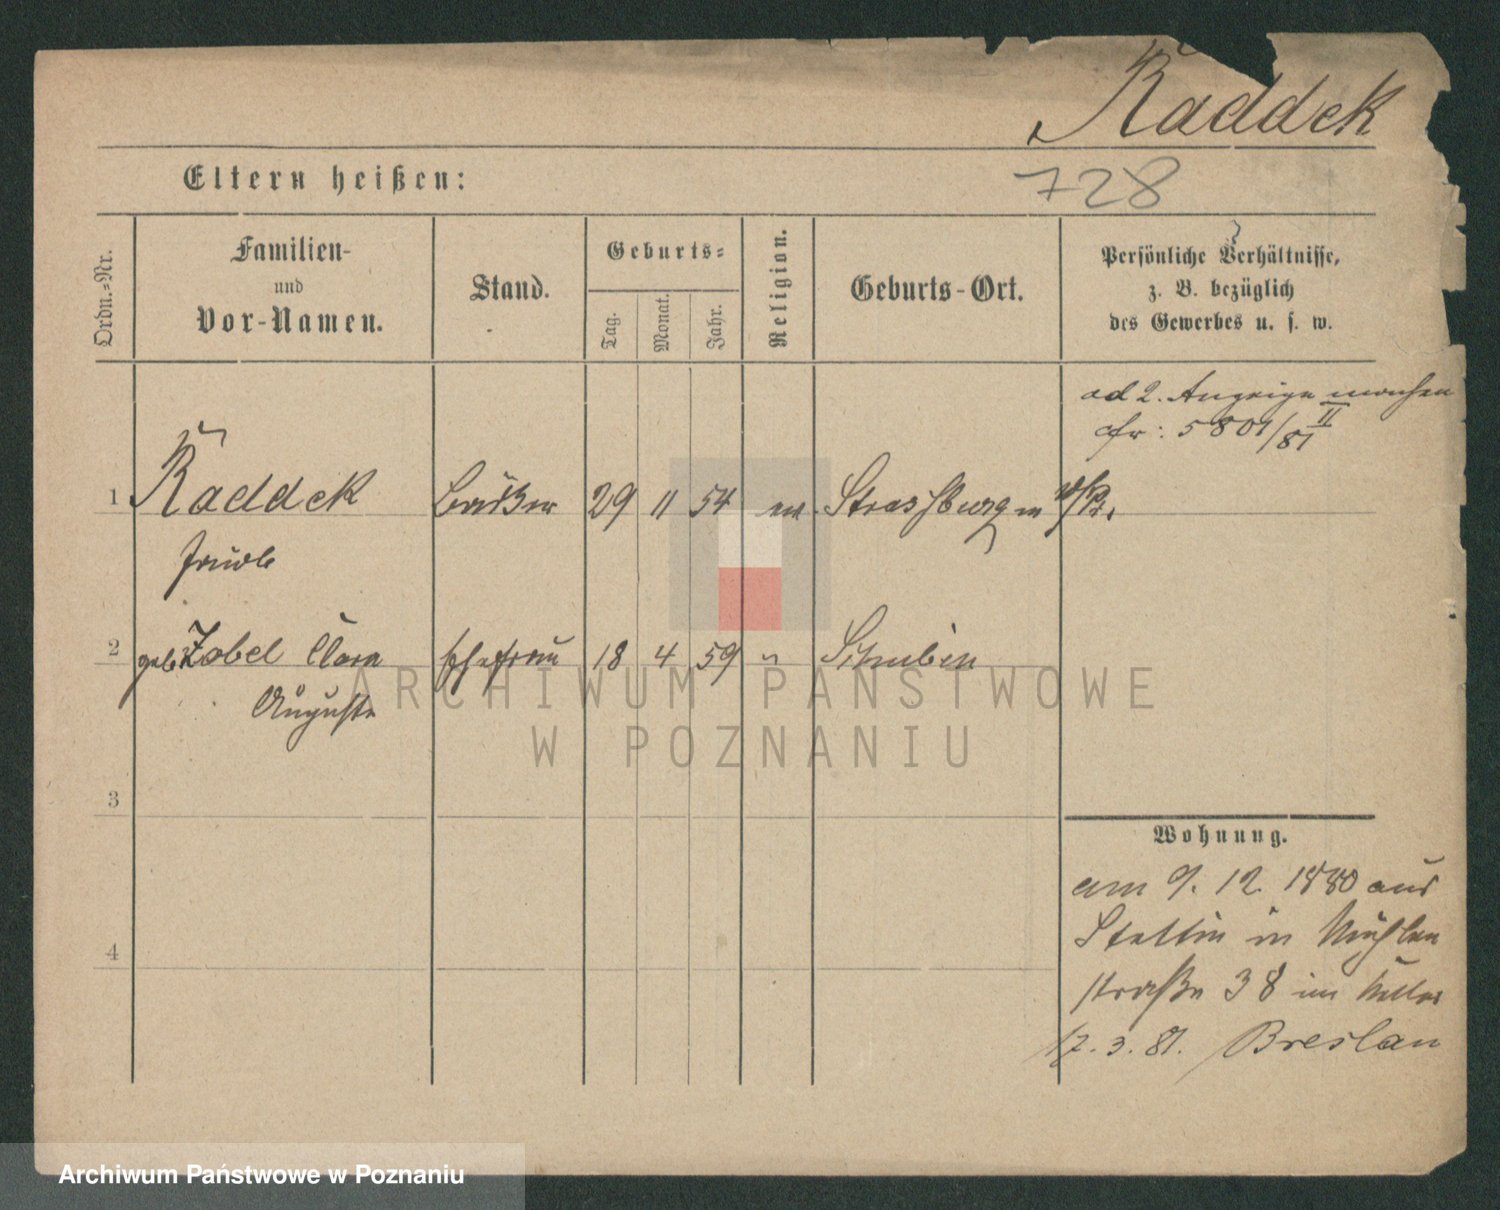 Raddek
Eltern heißen:
728
Ordn.-Nr.
Familien-
und
Vor-Namen.
Stand.
Geburts-
Tag.
Monat.
Jahr.
Religion.
Geburts-Ort.
Persönliche Verhältnisse,
z. B. bezüglich
des Gewerbes u. s. w.
ad 2. Anzeige machen
cfr: 5801/81 II
1 Raddek 29 11 54 ev. Strassburg in W/Pr.
2 geb. Zobel Clara Ehefrau 18 4 59 " Schubin
Auguste
3
4
Wohnung.
am 9. 12. 1880 aus
Stettin in Mühlen
straße 38 im Keller
17. 3. 81. Breslau
ARCHIWUM PAŃSTWOWE
W POZNANIU
Archiwum Państwowe w Poznaniu